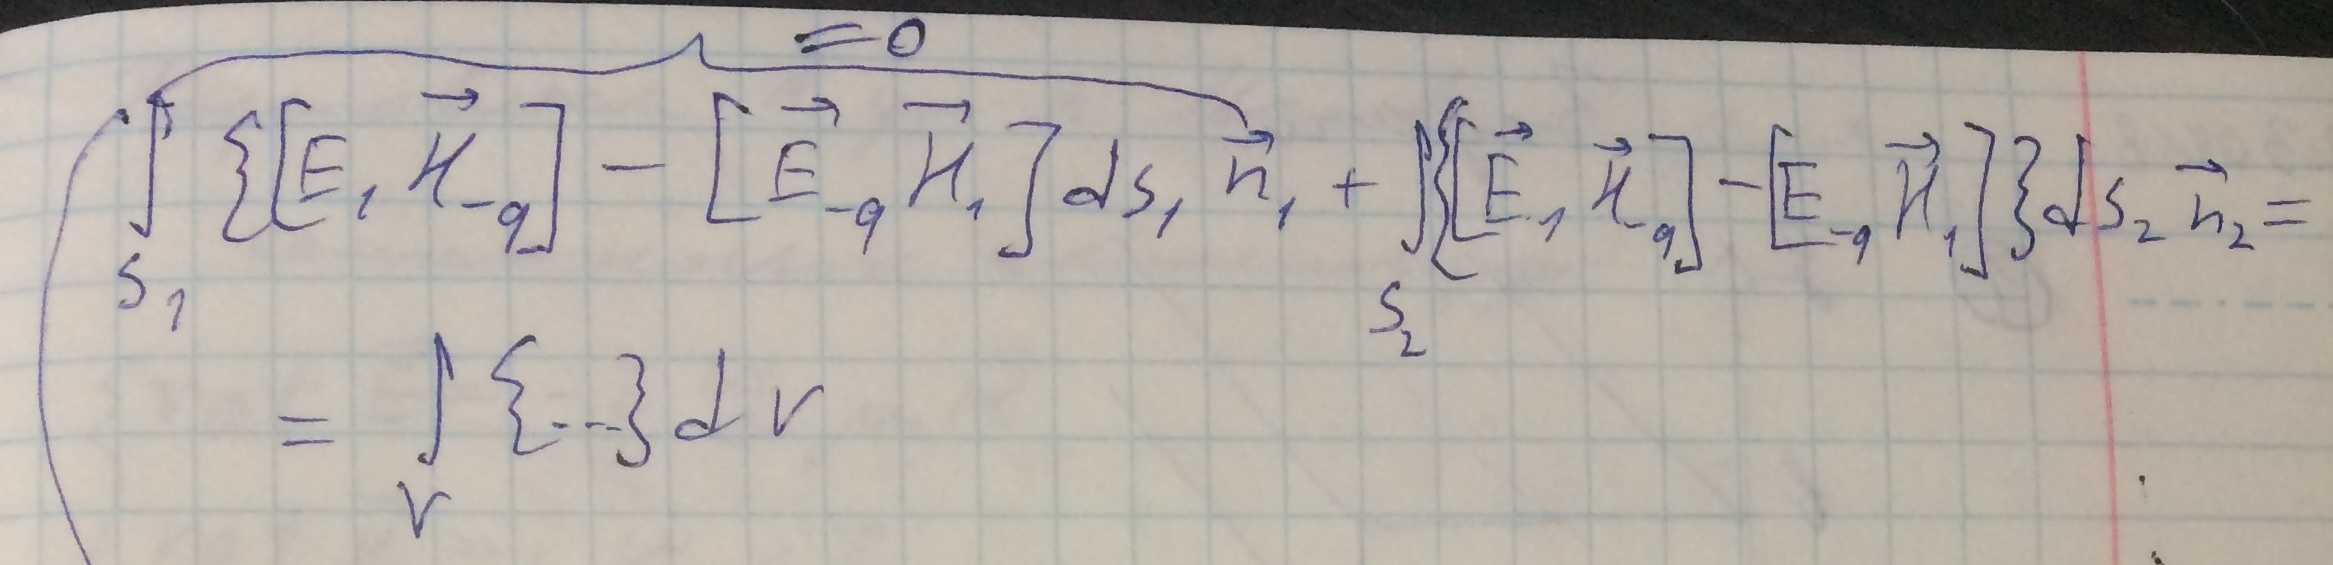 = 0
∫_{S_1} {[E_1 \vec{H}_{-q}] - [\vec{E}_{-q} \vec{H}_1] dS_1 \vec{n}_1 + ∫_{S_2} {[\vec{E}_1, \vec{H}_{-q}] - [E_{-q} \vec{H}_1]} dS_2 \vec{n}_2 =
= ∫_V {...} dV